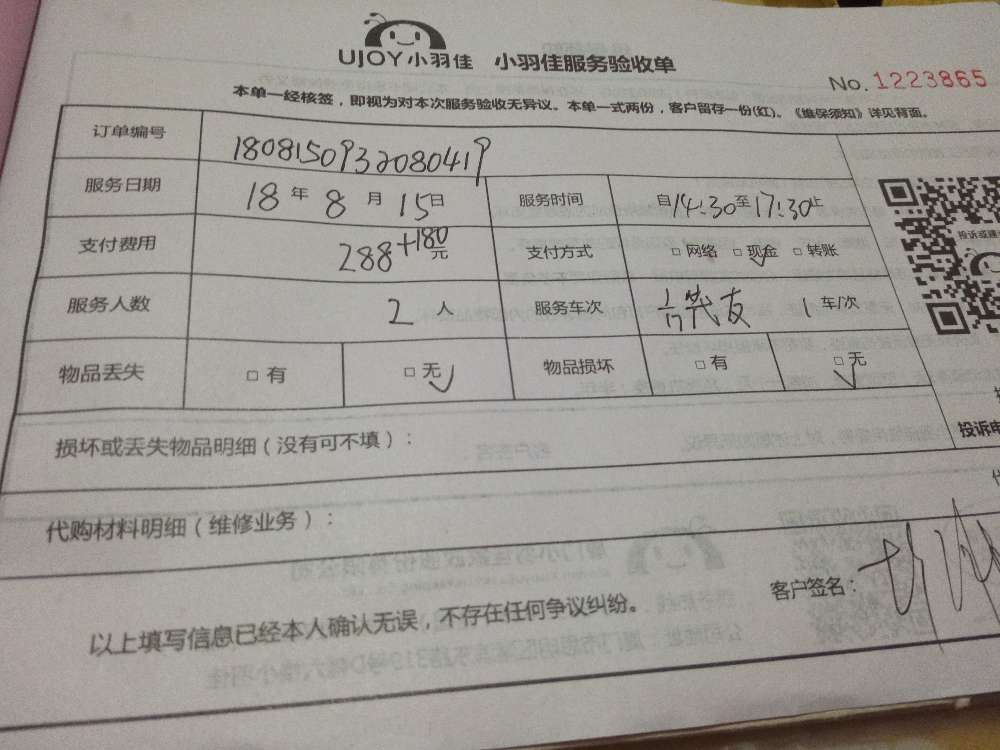 UJOY小羽佳 小羽佳服务验收单
No. 1223865
本单一经核签，即视为对本次服务验收无异议。本单一式两份，客户留存一份(红)。《维保须知》详见背面。
订单编号 1808150932080419
服务日期 18 年 8 月 15 日 服务时间 自14:30至17:30止
支付费用 288+180 元 支付方式 □ 网络 □ 现金 ✓ □ 转账
服务人数 2 人 服务车次 1 车/次
物品丢失 □ 有 □ 无 ✓ 物品损坏 □ 有 □ 无 ✓
投诉或建
投诉电
损坏或丢失物品明细（没有可不填）：
代购材料明细（维修业务）：
客户签名：
以上填写信息已经本人确认无误，不存在任何争议纠纷。